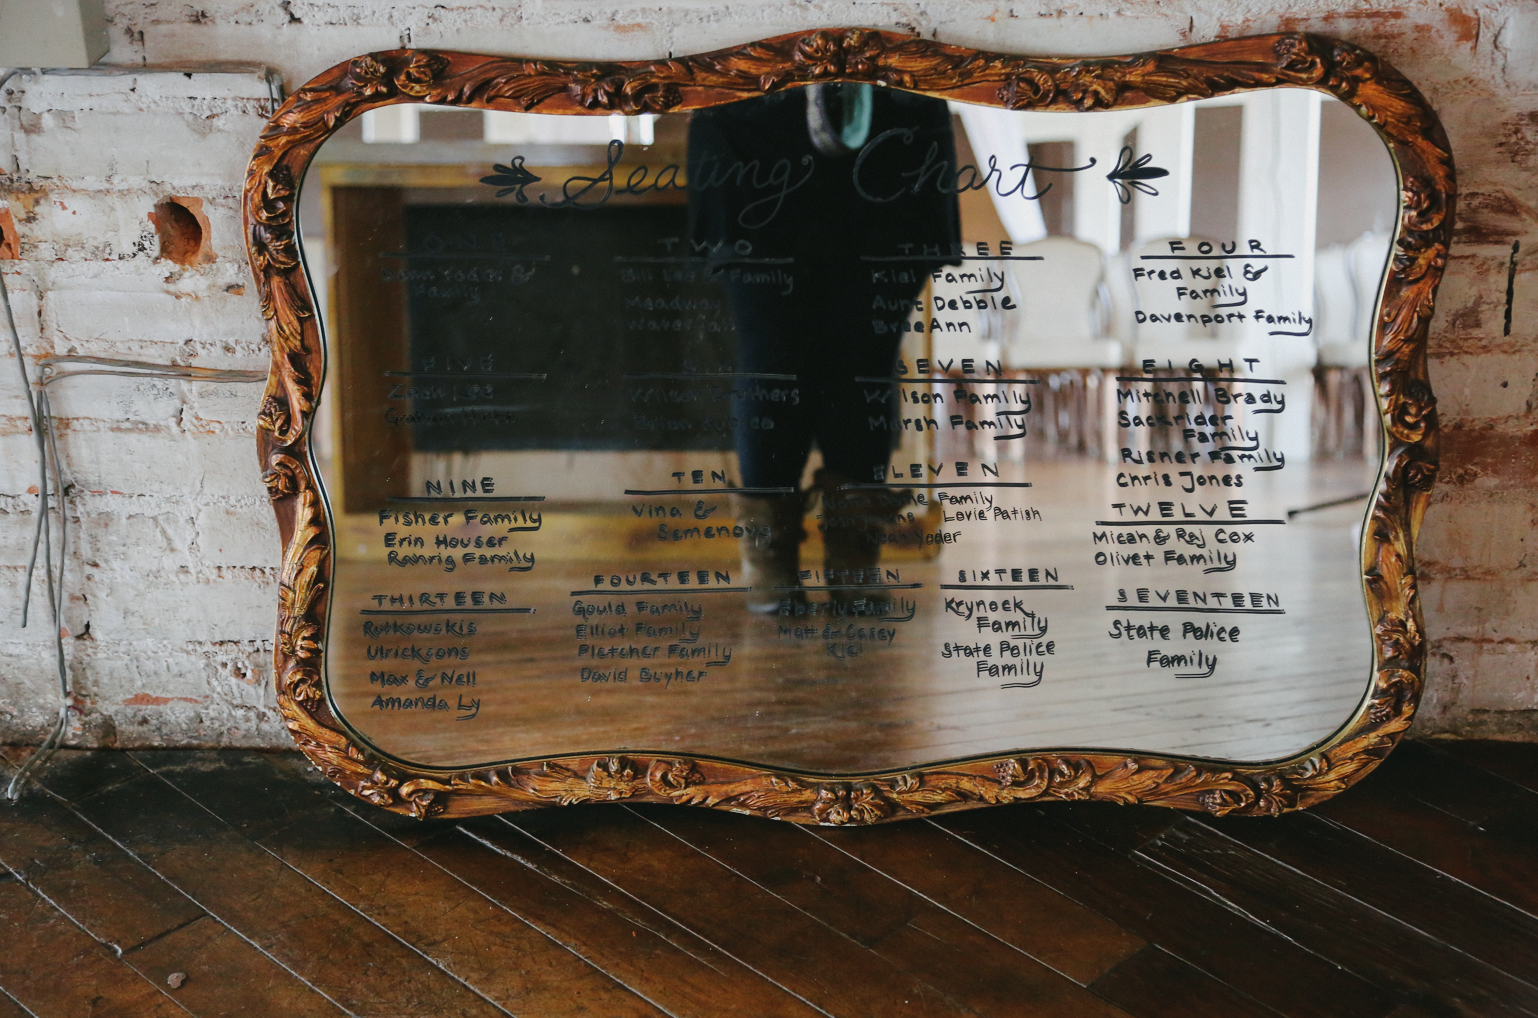 Seating Chart
ONE
Yoder &
Family
TWO
Bill Lee & Family
Meadway
THREE
Kiel Family
Aunt Debbie
BreeAnn
FOUR
Fred Kiel &
Family
Davenport Family
FIVE
Zach Lee
SIX
Wilson Brothers
Brian
SEVEN
Wilson Family
Marsh Family
EIGHT
Mitchell Brady
Sackrider
Family
Risner Family
Chris Jones
NINE
Fisher Family
Erin Houser
Rahrig Family
TEN
Vina &
Semenova
ELEVEN
Family
Lovie Patish
Noah Yoder
TWELVE
Micah & Raj Cox
Olivet Family
THIRTEEN
Rutkowskis
Ulricksons
Max & Nell
Amanda Ly
FOURTEEN
Gould Family
Elliot Family
Pletcher Family
David Buyher
FIFTEEN
Eberly Family
Matt & Casey
Kiel
SIXTEEN
Krynock
Family
State Police
Family
SEVENTEEN
State Police
Family